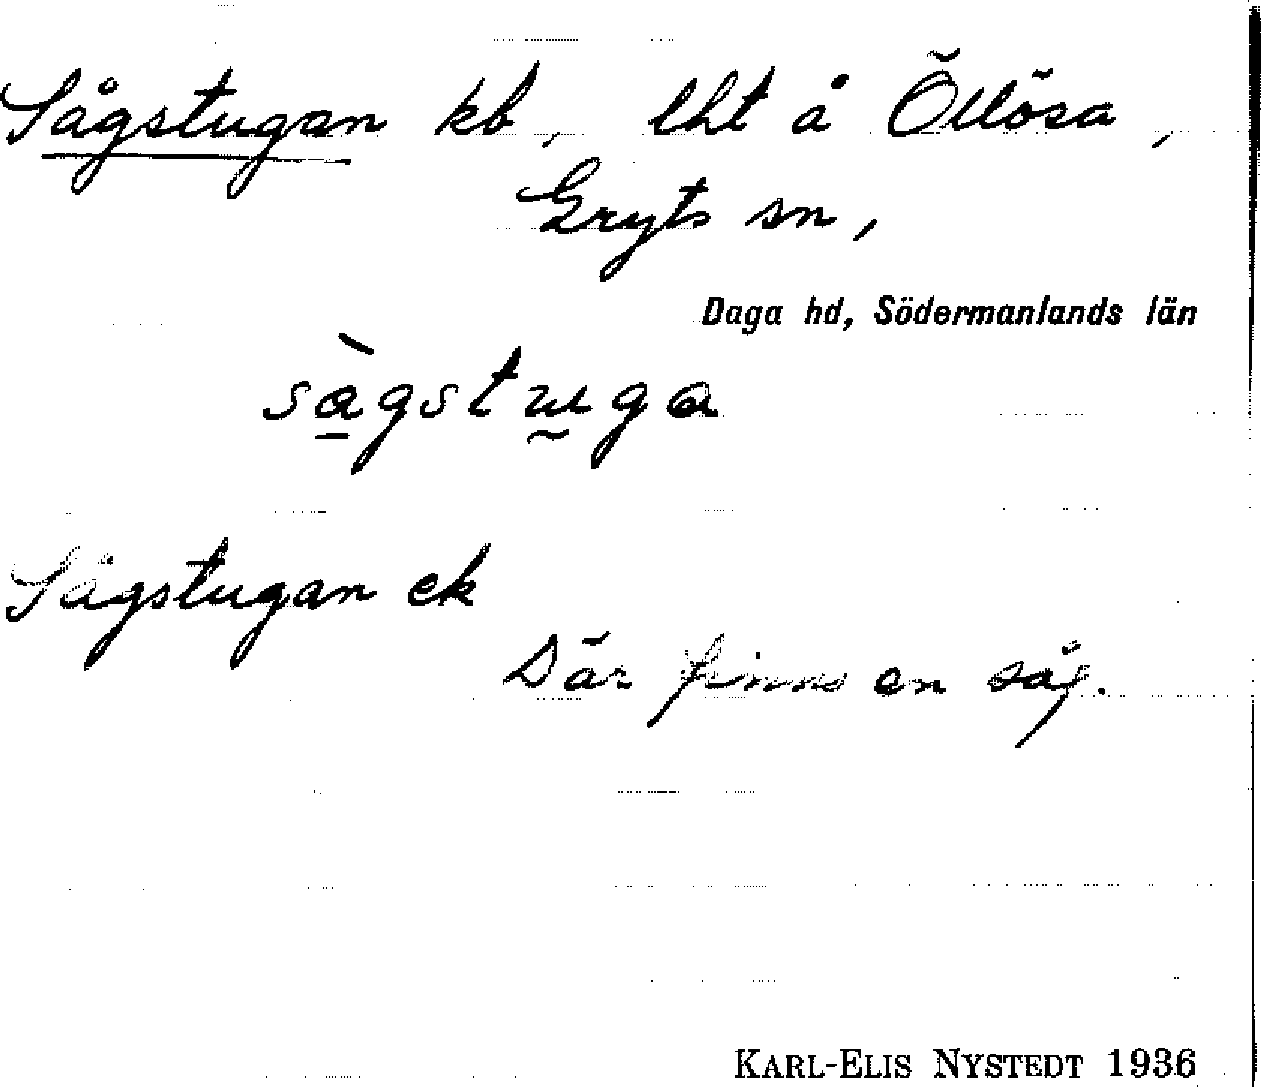 Sågstugan kb, lht å Öllösa,
Gryts sn,
Daga hd, Södermanlands län
sàgstuga
Sågstugan ek
Där finns en såg.
KARL-ELIS NYSTEDT 1936